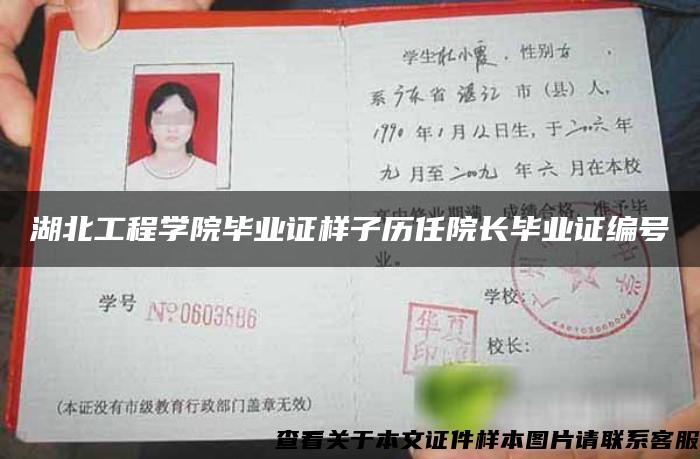 学生杜小霞，性别女，
系广东省湛江市（县）人，
1990年1月12日生，于二〇〇六年
九月至二〇〇九年六月在本校
高中修业期满，成绩合格，准予毕
业。
湖北工程学院毕业证样子历任院长毕业证编号
学号 №0603586
学校：
校长：
（本证没有市级教育行政部门盖章无效）
查看关于本文证件样本图片请联系客服